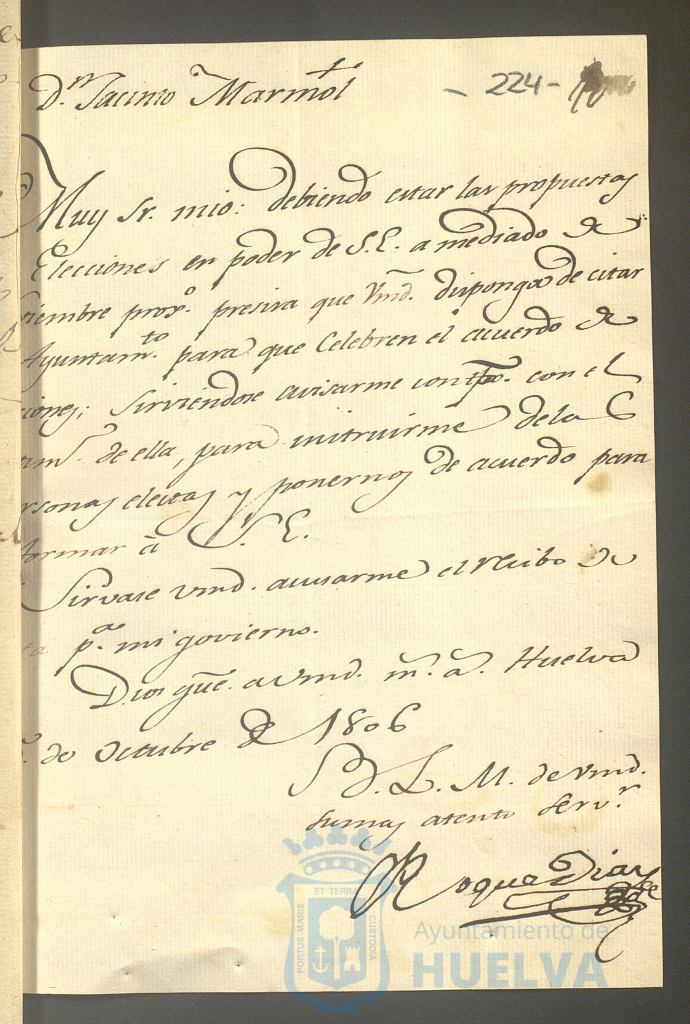 D.n Jacinto Marmol
- 224 -
Muy Sr. mio: debiendo estar las propuestas
Elecciones en poder de S.E. a mediado de
iembre prox.o presisa que Vmd. disponga de citar
Ayuntam.to para que Celebren el acuerdo de
iones; sirviendose avisarme con tpo. con el
de ella, para instruirme de la
rsonas electas y ponernos de acuerdo para
formar à S.E.
Sirvase vmd. avisarme el recibo de
ta p.a mi govierno.
Dios gue. a Vmd. m.s a.s Huelva
de Octubre de 1806
B. L. M. de Vmd.
su mas atento serv.r
Roque Diaz
PORTUS MARIS ET TERRAE CUSTODIA
Ayuntamiento de
HUELVA